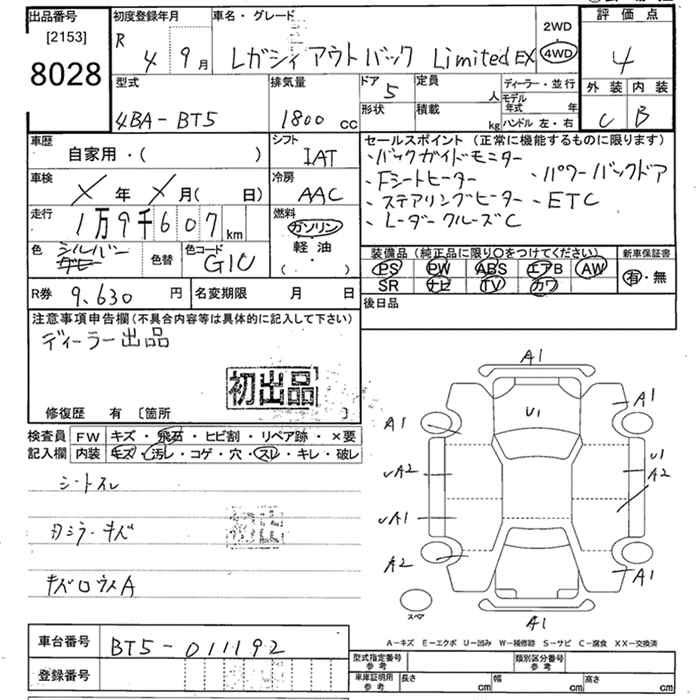 出品番号 [2153] 8028
初度登録年月 R 4 9月
車名・グレード レガシィ アウトバック Limited EX
2WD 4WD
評価点 4
外装 C 内装 B
型式 4BA-BT5
排気量 1800 cc
ドア 5 定員 人
形状 積載 kg
ディーラー・並行
モデル年式 年
ハンドル 左・右
車歴 自家用・( )
シフト IAT
車検 X 年 X 月( 日)
冷房 AAC
走行 1万9千607 km
燃料 ガソリン 軽油 ( )
色 シルバー 色替 色コード G1U
R券 9,630 円 名変期限 月 日
セールスポイント (正常に機能するものに限ります)
・バックガイドモニター
・Fシートヒーター ・パワーバックドア
・ステアリングヒーター ・ETC
・レーダークルーズC
装備品 (純正品に限り○をつけてください) 新車保証書
PS PW ABS エアB AW 有・無
SR ナビ TV カワ
後日品
注意事項申告欄(不具合内容等は具体的に記入して下さい)
ディーラー出品
初出品
修復歴 有 〔箇所 〕
検査員 FW キズ・飛石・ヒビ割・リペア跡・×要
記入欄 内装 キズ・汚レ・コゲ・穴・スレ・キレ・破レ
シートスレ
カミラーキズ
キズロウスA
初出
A1
A1 U1 A1
UA2 U1 A2
UA1
A2 A1
スペア A1
A-キズ E-エクボ U-凹み W-補修跡 S-サビ C-腐食 XX-交換済
車台番号 BT5-011192
登録番号
型式指定番号 参考 類別区分番号 参考
車庫証明用 参考 長さ cm 幅 cm 高さ cm